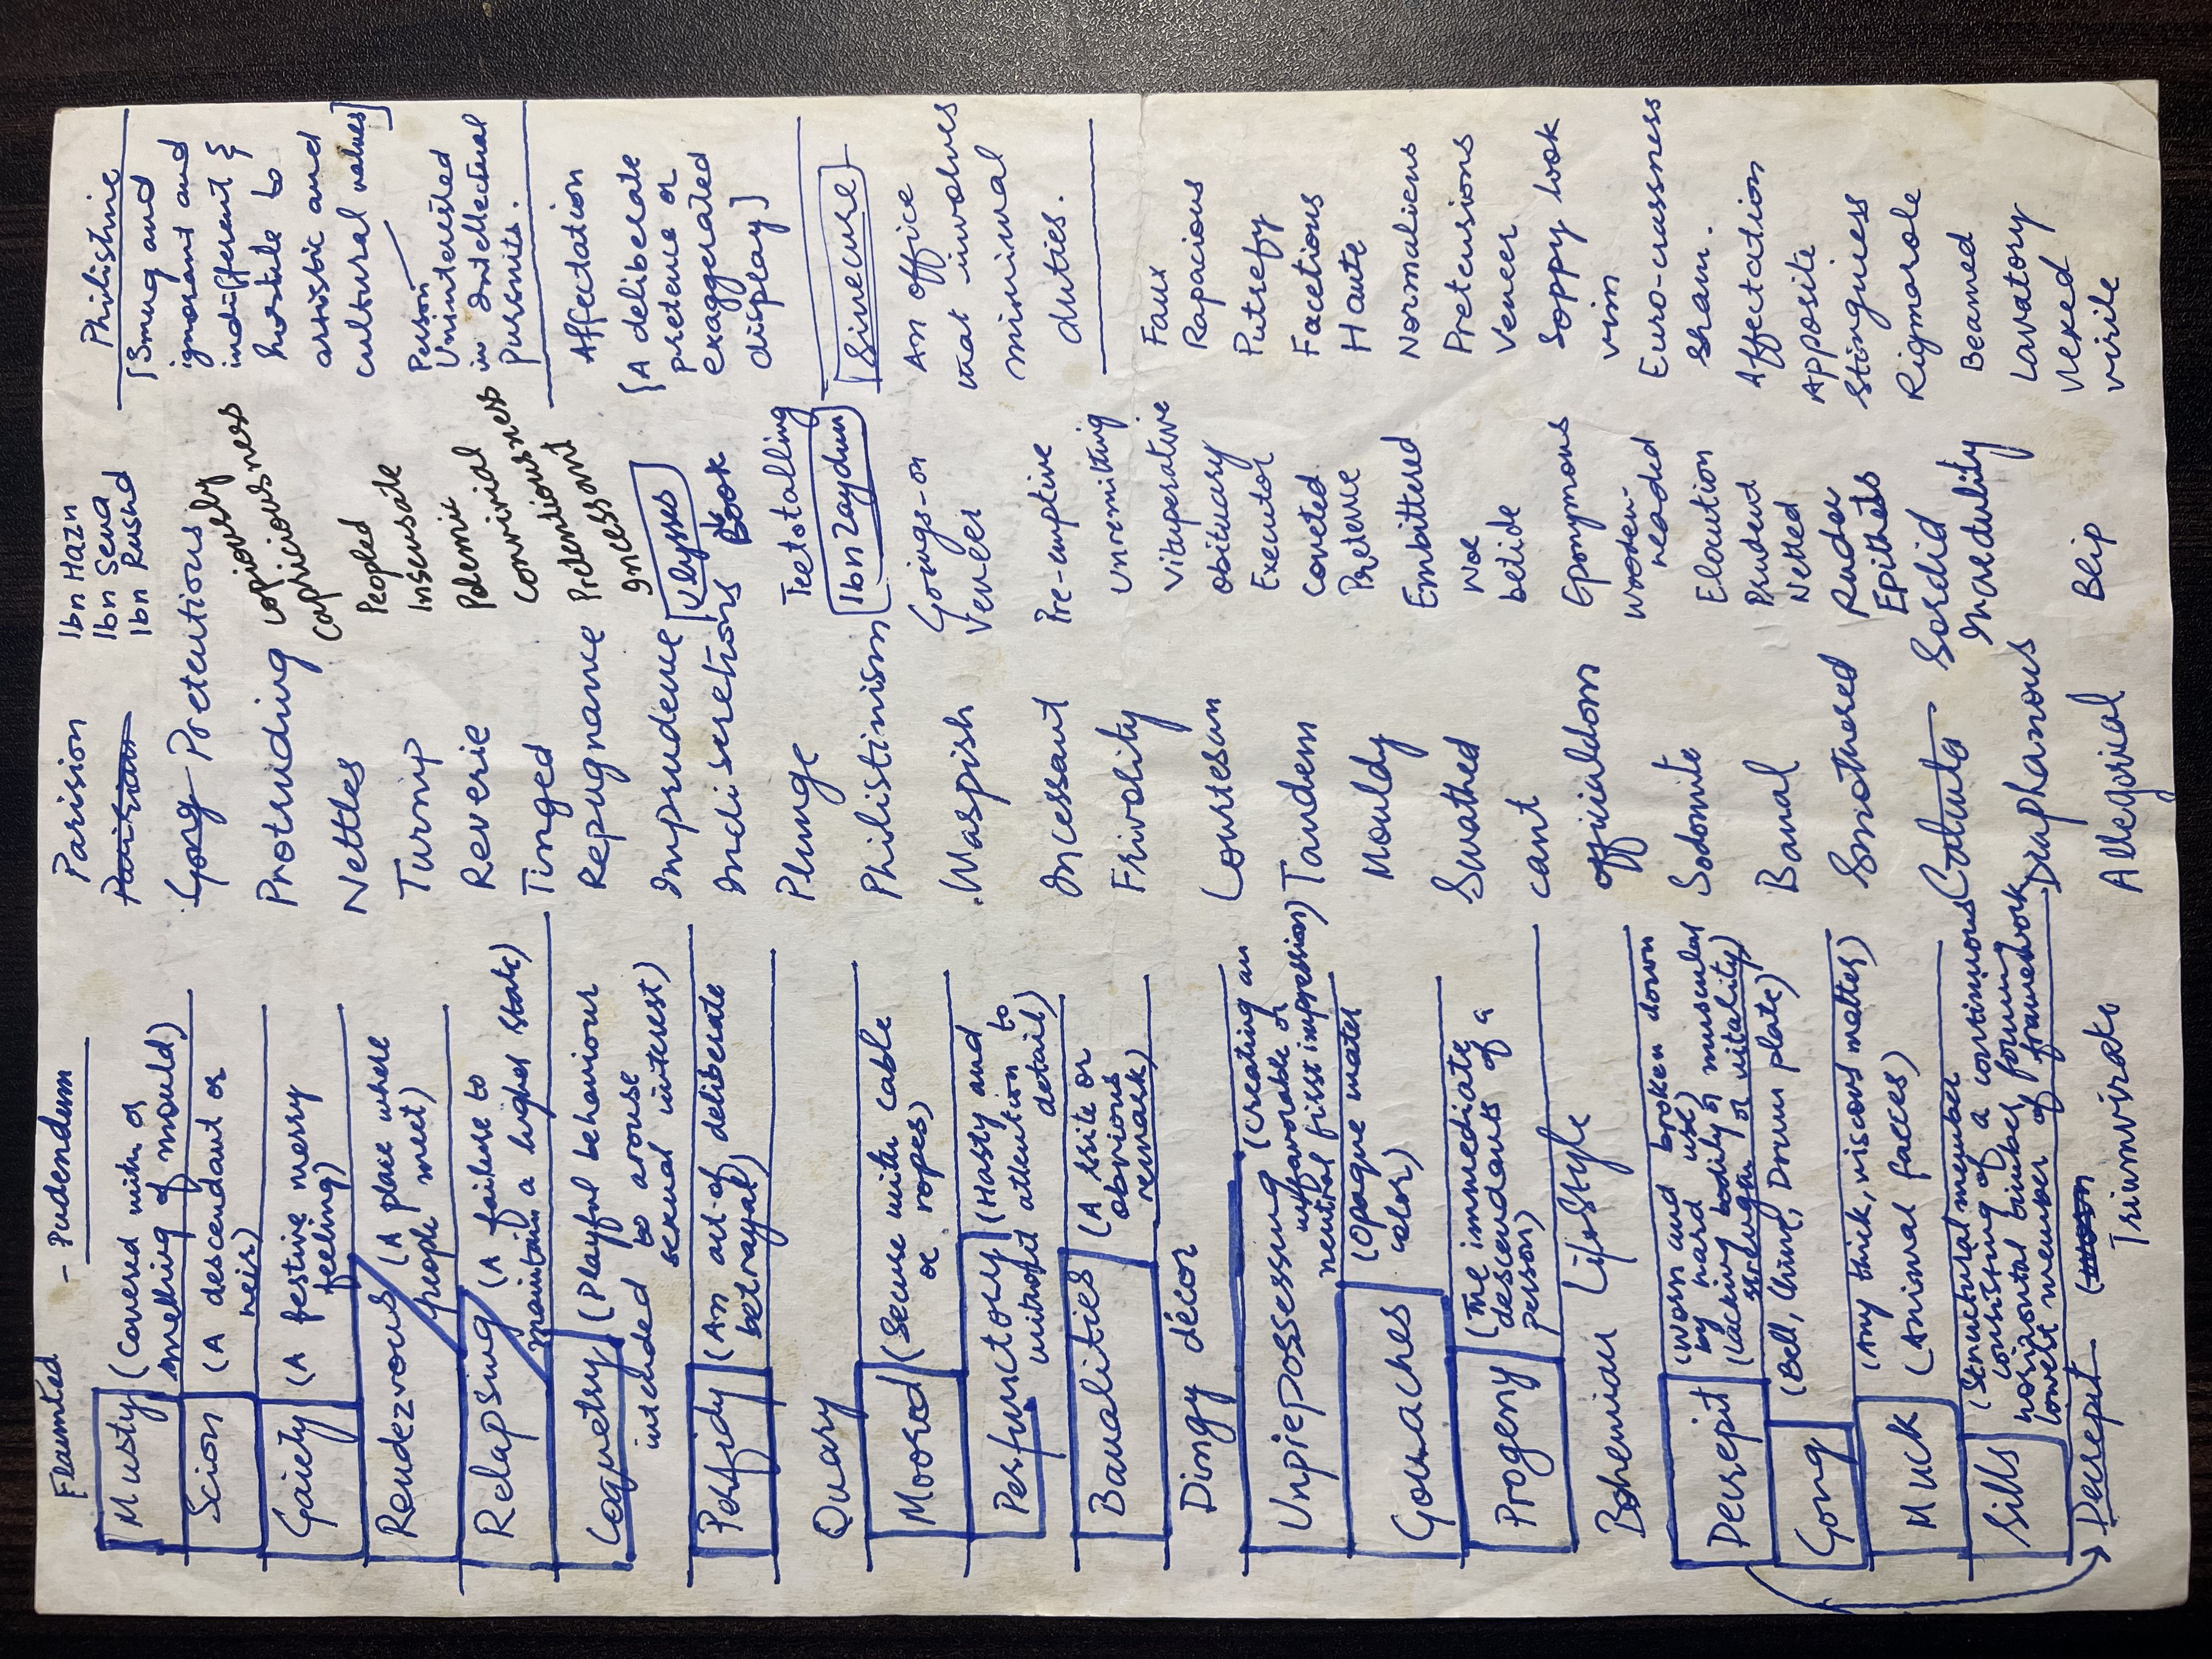 Flaunted – Pudendem
Musty (Covered with or
smelling of mould)
Scion (A descendant or
heir)
Gaiety (A festive merry
feeling)
Rendezvous (A place where
people meet)
Relapsing (A failure to
maintain a higher state)
Coquetry (Playful behaviour
intended to arouse
sexual interest)
Perfidy (An act of deliberate
betrayal)
Quary
Moored (Secure with cable
or ropes)
Perfunctory (Hasty and
without attention to
detail)
Banalities (A trite or
obvious
remark)
Dingy décor
Unprepossessing (Creating an
unfavorable or
neutral first impression)
Gouaches (Opaque water
color)
Progeny (The immediate
descendants of a
person)
Bohemian Lifestyle
Decrepit (Worn and broken down
by hard use)
(lacking bodily or muscular
strength or vitality)
Gong (Bell, Chime, Drum plate)
Muck (Any thick, viscous matter)
(Animal faeces)
Sills (Structural member
consisting of a continuous
horizontal timber forming
lowest member of framework
Decrepit
Triumvirate
Parision
Gong Pretentious
Protruding
Nettles
Turnip
Reverie
Tinged
Repugnance
Imprudence
Indiscretions
Plunge
Philistinism
Waspish
Incessant
Frivolity
Courtesan
Tandem
Mouldy
Swathed
cant
officialdom
Sodomite
Banal
Smothered
Diaphanous
Allegorical
Ibn Hazn
Ibn Sena
Ibn Rushd
copiously
capriciousness
Peopled
Insensate
Polemic
Convivial
Conviviousness
Pretentious
Incessant
Ulysses
Book
Teetotalling
Ibn Zaydun
Goings-on
Veneer
Pre-emptive
Unremitting
Vituperative
Obituary
Executor
Coveted
Embittered
Woe
betide
Eponymous
Wooden-
headed
Elocution
Prudent
Netted
Ruder
Epithets
Sordid
Incredulity
Blip
Philistine
[Smug and
ignorant and
indifferent &
hostile to
artistic and
cultural values]
Person
Uninterested
in intellectual
pursuits.
Affectation
[A deliberate
pretence or
exaggerated
display]
[Sinecure]
An office
that involves
minimal
duties.
Faux
Rapacious
Putrefy
Facetious
Haute
Normaliens
Pretensions
Veneer
Soppy look
vim
Euro-crassness
Sham.
Affectation
Apposite
Stinginess
Rigmarole
Beamed
Lavatory
Vexed
virile